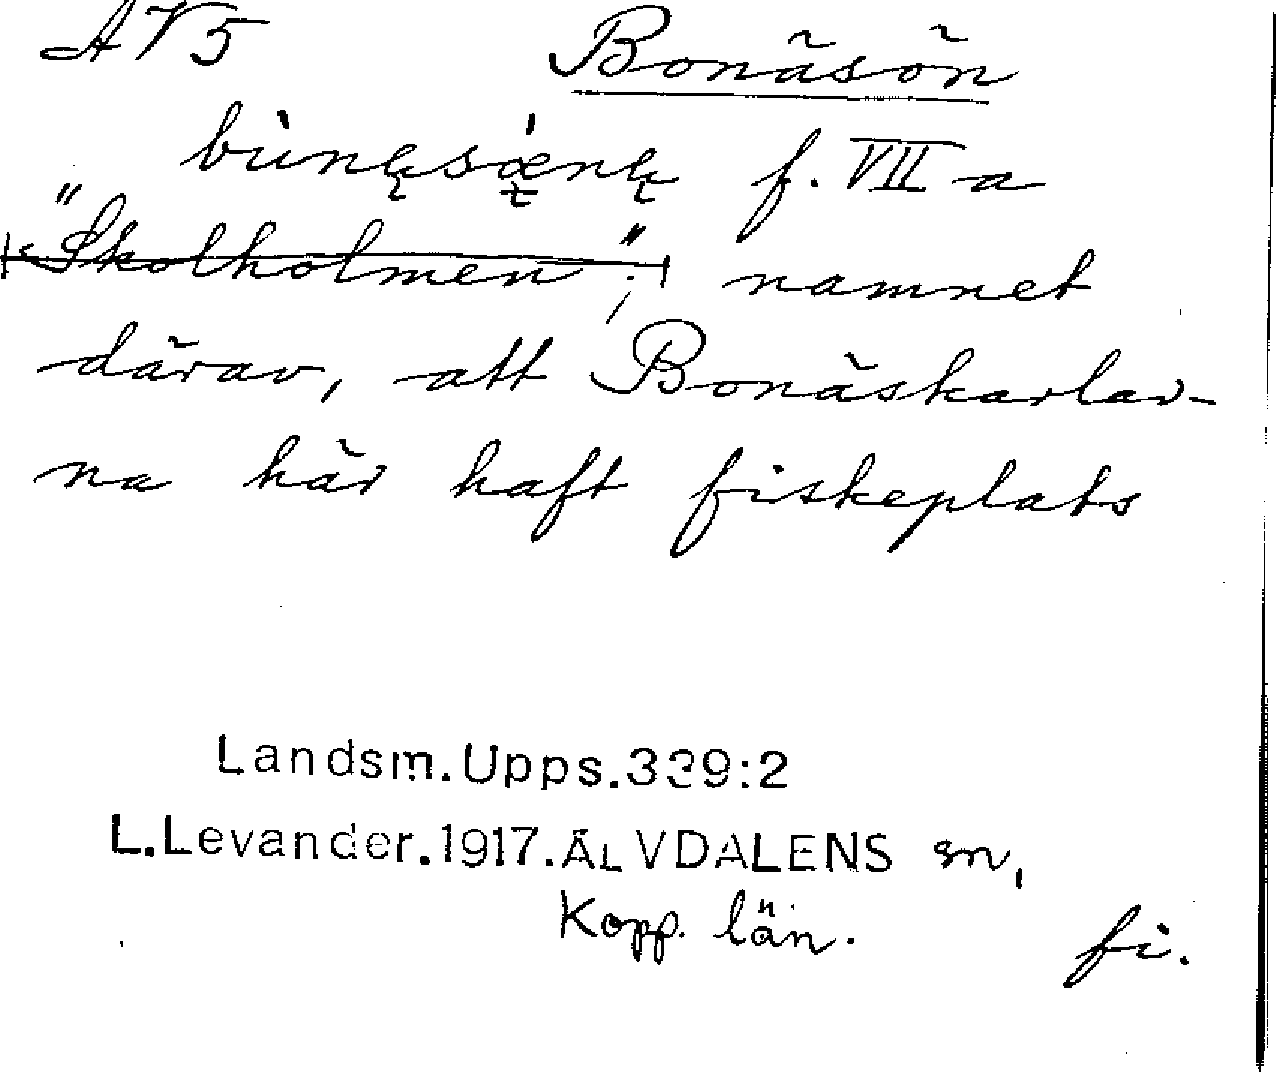 AV5 Bonäsön
bùnęsǿnę f. VII a
"Skolholmen"; namnet
därav, att Bonäskarlar-
na här haft fiskeplats
Landsm.Upps.339:2
L.Levander.1917.ÄLVDALENS sn,
Kopp. län. fi.